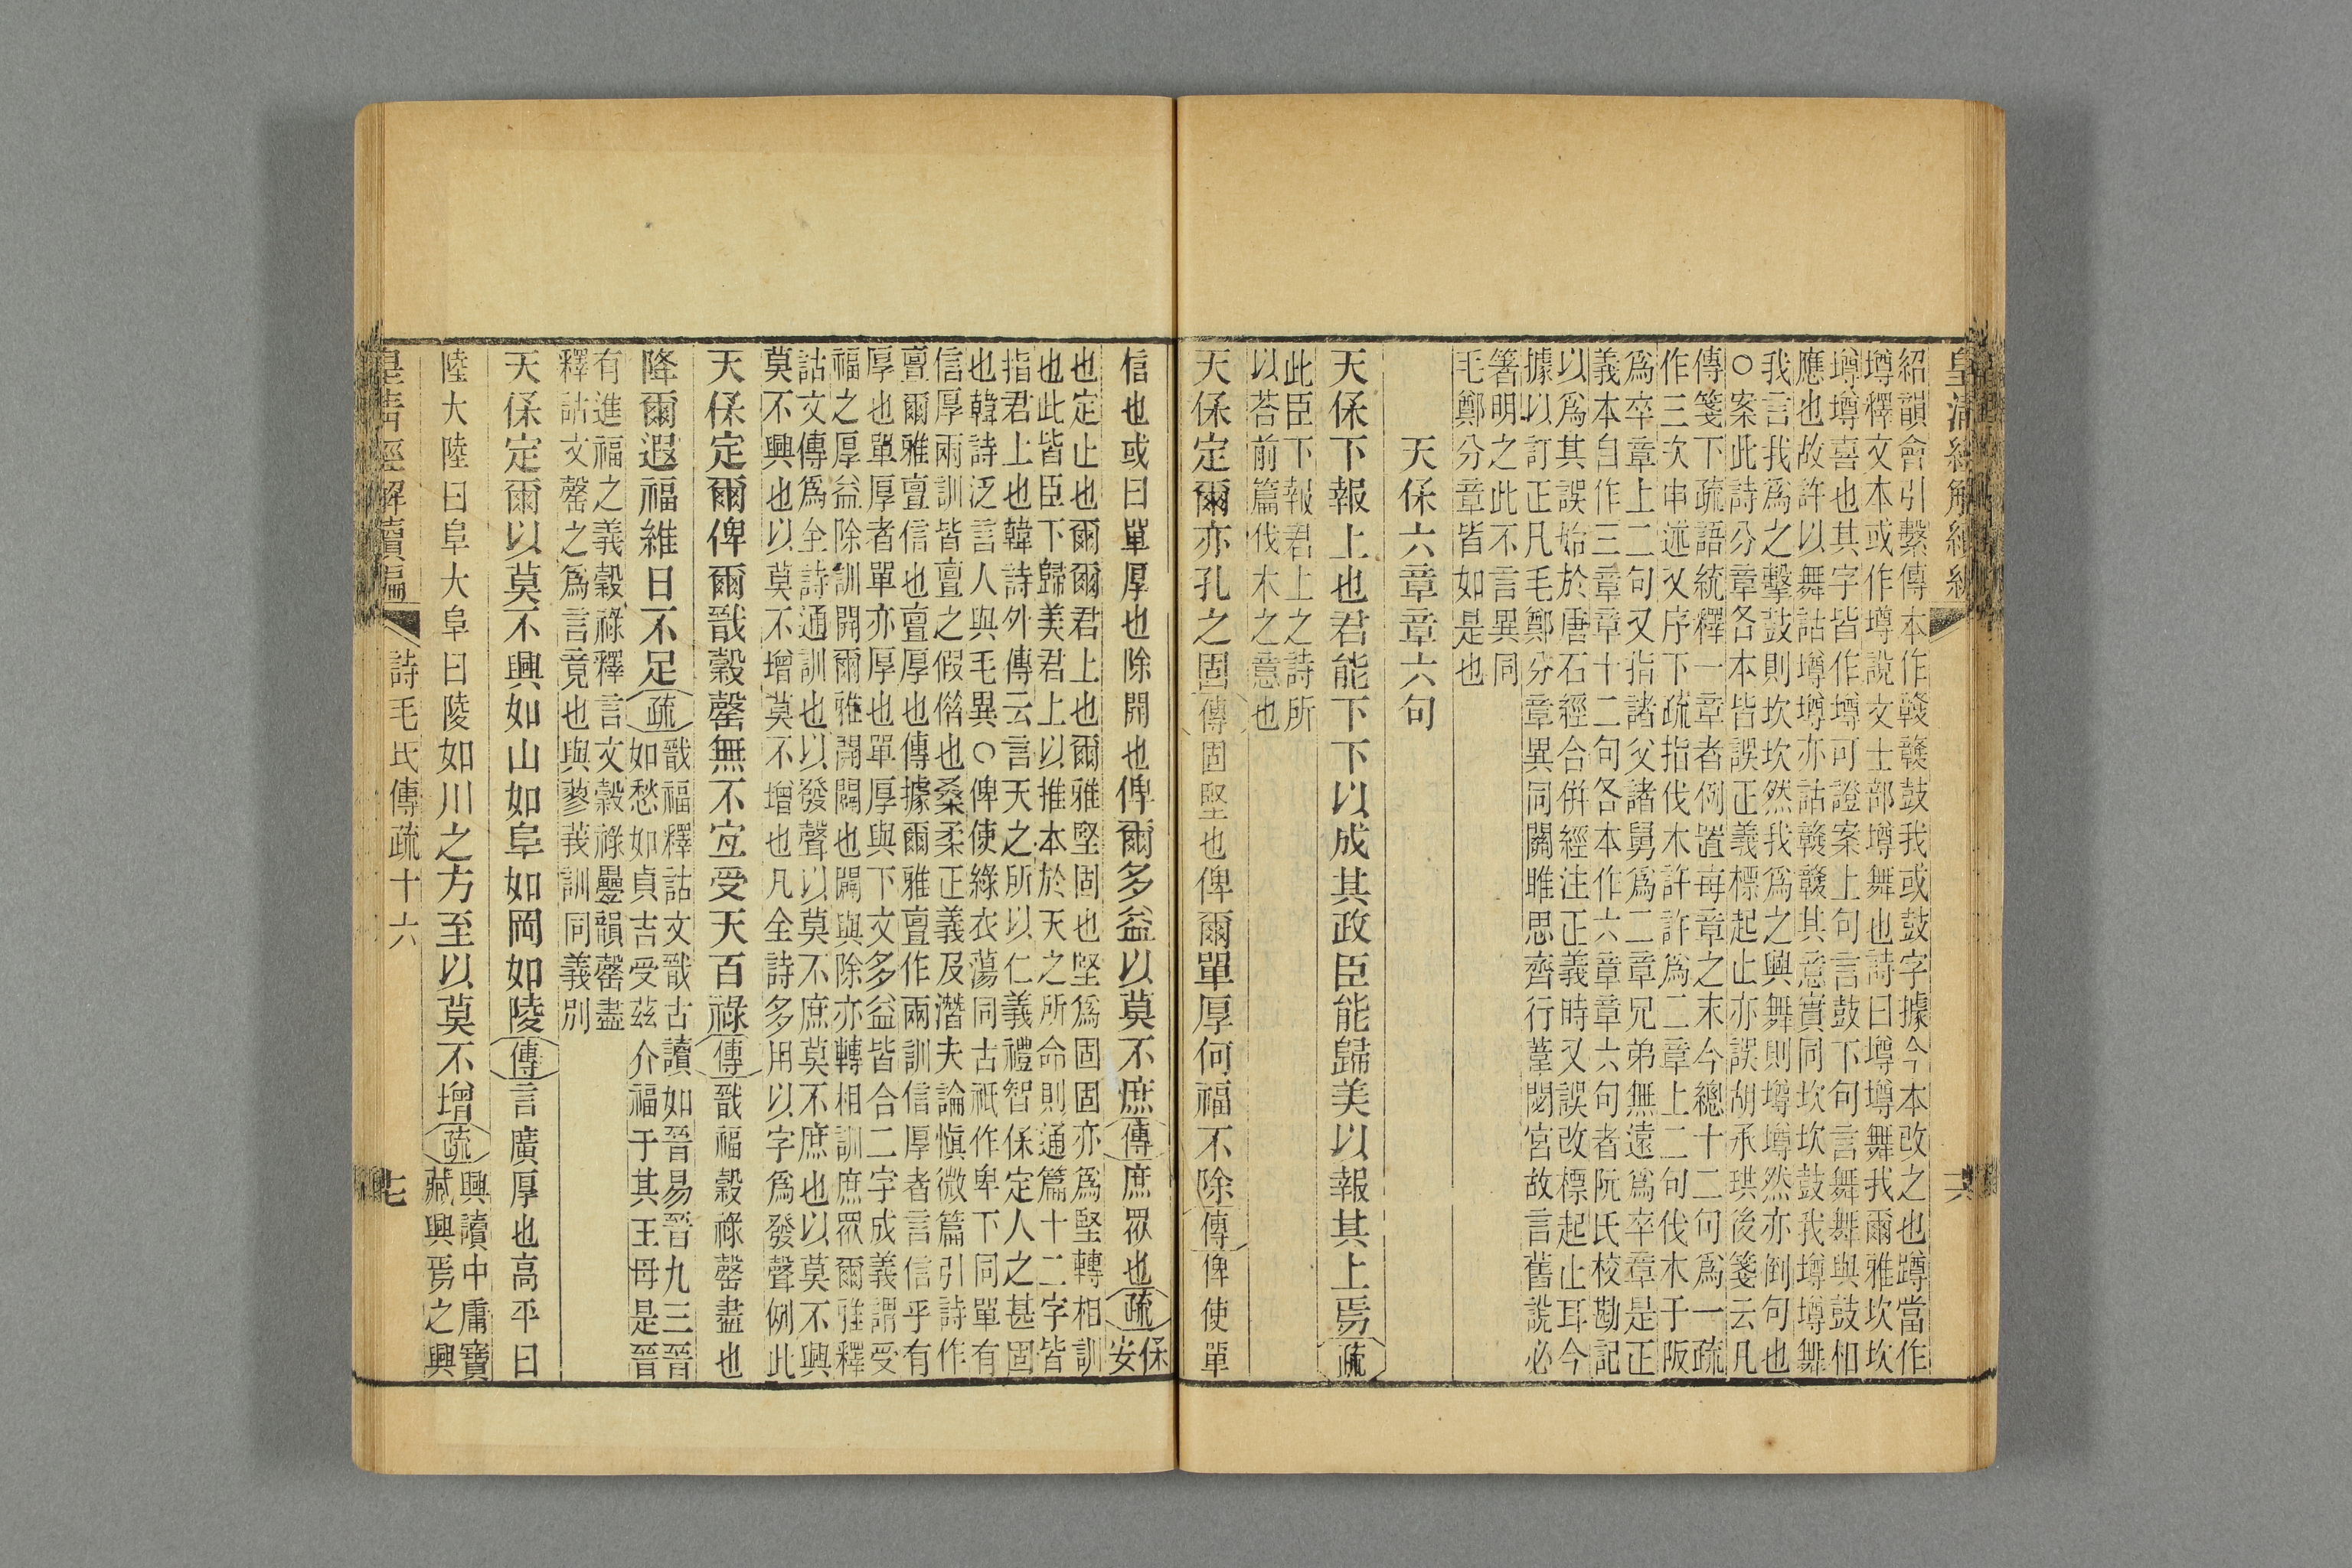 皇清經解續編
十六
紹韻會引繫傳本作竷竷鼓我或鼓字據今本改之也蹲當作
壿釋文本或作壿說文士部壿舞也詩曰壿壿舞我爾雅坎坎
壿壿喜也其字皆作壿可證案上句言鼓下句言舞舞與鼓相
應也故許以舞詁壿壿亦詁竷竷其意實同坎坎鼓我壿壿舞
我言我爲之擊鼓則坎坎然我爲之興舞則壿壿然亦倒句也
○案此詩分章各本皆誤正義標起止亦誤胡承珙後箋云凡
傳箋下疏語統釋一章者例置每章之末今總十二句爲一疏
作三次申述又序下疏指伐木許許爲二章上二句伐木于阪
爲卒章上二句又指諸父諸舅爲二章兄弟無遠爲卒章是正
義本自作三章章十二句各本作六章章六句者阮氏校勘記
以爲其誤始於唐石經合併經注正義時又誤改標起止耳今
據以訂正凡毛鄭分章異同關雎思齊行葦閟宮故言舊說必
箸明之此不言異同
毛鄭分章皆如是也
天保六章章六句
天保下報上也君能下下以成其政臣能歸美以報其上焉疏
此臣下報君上之詩所
以荅前篇伐木之意也
天保定爾亦孔之固傳固堅也俾爾單厚何福不除傳俾使單
信也或曰單厚也除開也俾爾多益以莫不庶傳庶眾也疏保
安
也定止也爾爾君上也爾雅堅固也堅爲固固亦爲堅轉相訓
也此皆臣下歸美君上以推本於天之所命則通篇十二字皆
指君上也韓詩外傳云言天之所以仁義禮智保定人之甚固
也韓詩泛言人與毛異○俾使綠衣蕩同古衹作卑下同單有
信厚兩訓皆亶之假偺也桑柔正義及潛夫論愼微篇引詩作
亶爾雅亶信也亶厚也傳據爾雅亶作兩訓信厚者言信乎有
厚也單厚者單亦厚也單厚與下文多益皆合二字成義謂受
福之厚益除訓開爾雅開闢也闢與除亦轉相訓庶眾爾雅釋
詁文傳爲全詩通訓也以發聲以莫不庶莫不庶也以莫不興
莫不興也以莫不增莫不增也凡全詩多用以字爲發聲例此
天保定爾俾爾戩穀罄無不宜受天百祿傳戩福穀祿罄盡也
降爾遐福維日不足疏戩福釋詁文戩古讀如晉易晉九三晉
如愁如貞吉受茲介福于其王母是晉
有進福之義穀祿釋言文穀祿曡韻罄盡
釋詁文罄之爲言竟也與蓼莪訓同義別
天保定爾以莫不興如山如阜如岡如陵傳言廣厚也高平曰
陸大陸曰阜大阜曰陵如川之方至以莫不增疏興讀中庸寶
藏興焉之興
皇清經解續編
詩毛氏傳疏十六
七